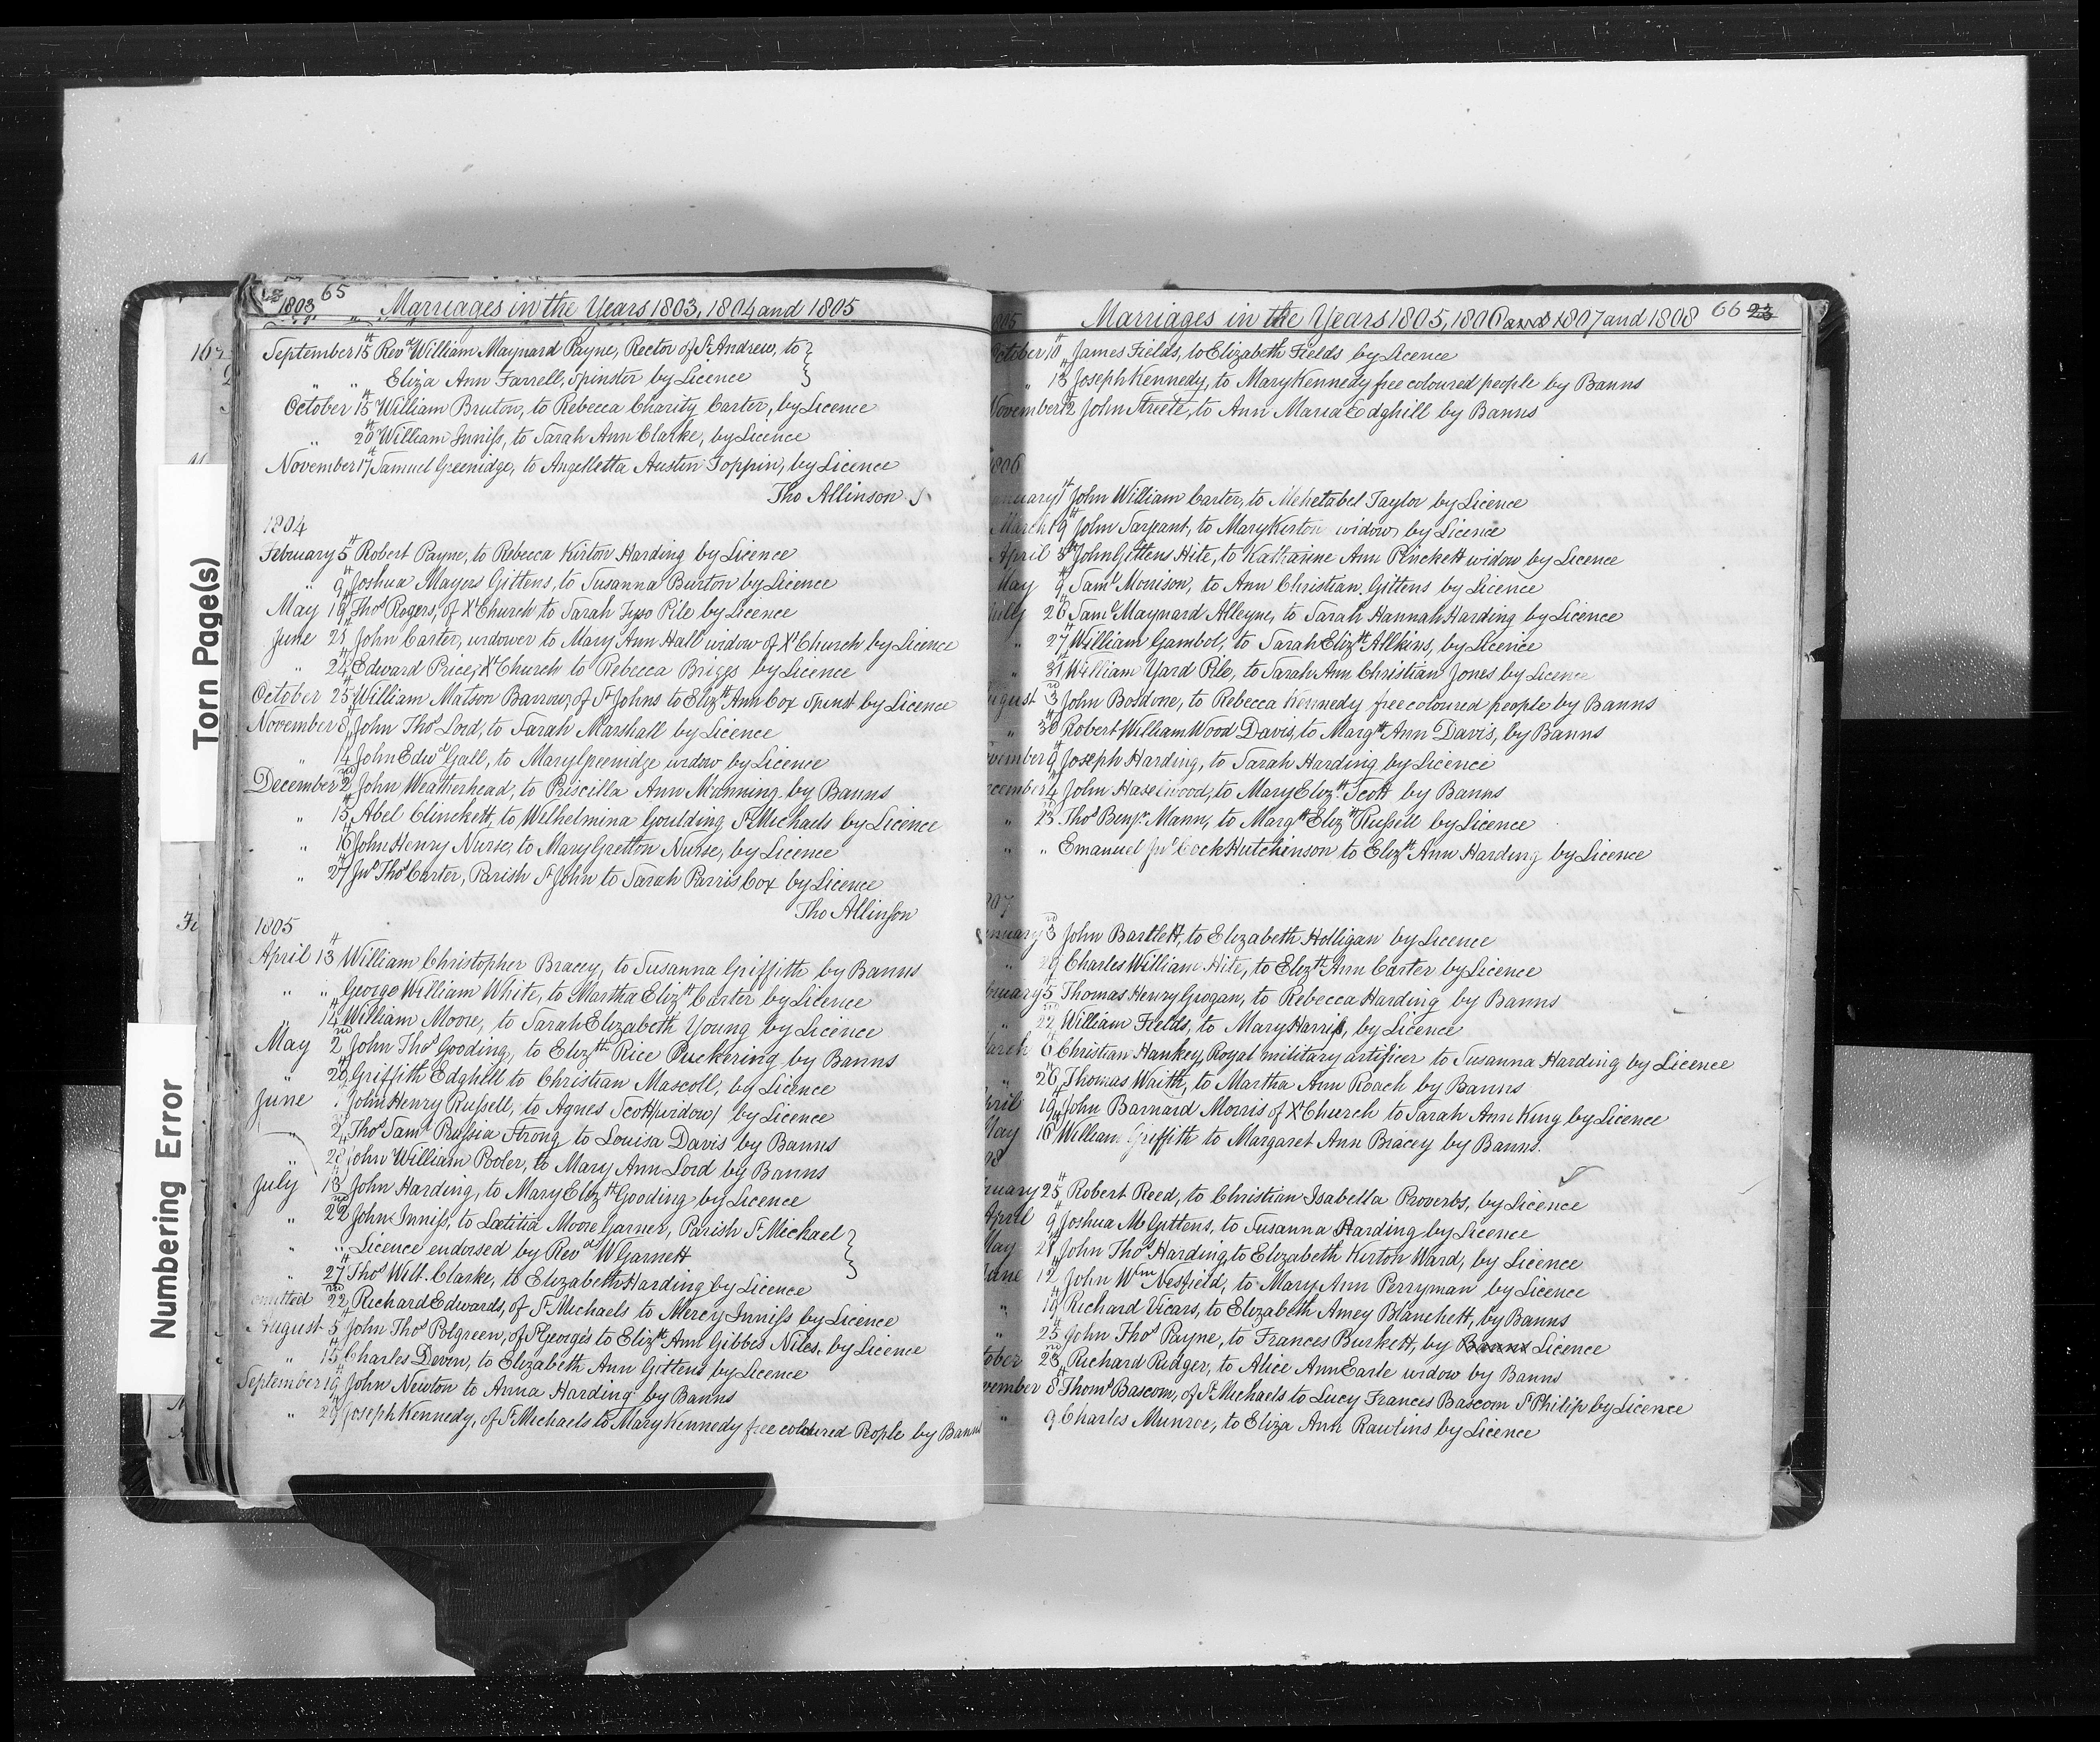 Torn Page(s)
Numbering Error
1803 65 Marriages in the Years 1803, 1804 and 1805
September 15th Revd William Maynard Payne, Rector of St Andrew, to
" " Eliza Ann Farrell, Spinster by Licence
October 15th William Bruton, to Rebecca Charity Carter, by Licence
" 20th William Inniss, to Sarah Ann Clarke, by Licence
November 17th Samuel Greenidge, to Angelletta Austin Toppin, by Licence
Tho Allinson
1804
February 5th Robert Payne, to Rebecca Kirton Harding by Licence
" 9th Joshua Mayers Gittens, to Susanna Burton by Licence
May 19th Thos Rogers, of Xt Church to Sarah Pile by Licence
June 21st John Carter, widower to Mary Ann Hall widow of Xt Church by Licence
" 24th Edward Price, Xt Church to Rebecca Briggs by Licence
October 25th William Matson Barrow, of St Johns to Elizth Ann Cox Spinst by Licence
November 8th John Thos Lord, to Sarah Marshall by Licence
" 14th John Edwd Gall, to Mary Greenidge widow by Licence
December 2nd John Weatherhead, to Priscilla Ann Manning by Banns
" 15th Abel Clinckett, to Wilhelmina Goulding St Michaels by Licence
" 16th John Henry Nurse, to Mary Gretton Nurse, by Licence
" 27th Jno Thos Carter, Parish St John to Sarah Parris Cox by Licence
Tho Allinson
1805
April 13th William Christopher Bracey, to Susanna Griffith by Banns
" " George William White, to Martha Elizth Carter by Licence
" 14th William Moore, to Sarah Elizabeth Young by Licence
May 2nd John Thos Gooding, to Elizth Rice Puckering by Banns
" 20th Griffith Edghill to Christian Mascoll, by Licence
June John Henry Russell, to Agnes Scott (widow) by Licence
" Thos Saml Prussia Strong to Louisa Davis by Banns
" 28 John William Pooler, to Mary Ann Lord by Banns
July 13th John Harding, to Mary Elizth Gooding by Licence
" 22nd John Inniss, to Lætitia Moore Garner, Parish St Michael
" " Licence endorsed by Revd W Garnett
" 27th Thos Will. Clarke, to Elizabeth Harding by Licence
omitted 22nd Richard Edwards, of St Michaels to Mercy Inniss by Licence
August 5th John Thos Polgreen, of St Georges to Elizth Ann Gibbes Niles, by Licence
" 15th Charles Deven, to Elizabeth Ann Gittens by Licence
September 19th John Newton to Anna Harding by Banns
" 29th Joseph Kennedy, of St Michaels to Mary Kennedy free coloured People by Banns
Marriages in the Years 1805, 1806 and 1807 and 1808 66 23
October 10th James Fields, to Elizabeth Fields by Licence
" 13th Joseph Kennedy, to Mary Kennedy free coloured people by Banns
November 12th John Streete, to Ann Maria Edghill by Banns
1806
January 1st John William Carter, to Mehetabel Taylor by Licence
March 19th John Sargeant, to Mary Kirton widow by Licence
April John Gittens Hite, to Katharine Ann Plinckett widow by Licence
May 9th Saml Morrison, to Ann Christian Gittens by Licence
July 26th Saml Maynard Alleyne, to Sarah Hannah Harding by Licence
" 27th William Gambol, to Sarah Elizth Allkins, by Licence
" 31st William Yard Pile, to Sarah Ann Christian Jones by Licence
August 3rd John Bosdone, to Rebecca Kennedy free coloured people by Banns
" 30th Robert William Wood Davis, to Margtt Ann Davis, by Banns
November 9th Joseph Harding, to Sarah Harding by Licence
December 4th John Haselwood, to Mary Elizth Scott by Banns
" 23rd Thos Benjn Mann, to Margtt Elizth Russell by Licence
" " Emanuel Jno Cock Hutchinson to Elizth Ann Harding by Licence
1807
January 3rd John Bartlett, to Elizabeth Holligan by Licence
" 29th Charles William Hite, to Elizth Ann Carter by Licence
February 5th Thomas Henry Grogan, to Rebecca Harding by Banns
" 22nd William Fields, to Mary Harriss, by Licence
March 6th Christian Hankey, Royal military artificer to Susanna Harding by Licence
" 26th Thomas Waith, to Martha Ann Roach by Banns
April 19th John Barnard Morris of Xt Church to Sarah Ann King by Licence
May 16th William Griffith to Margaret Ann Bracey by Banns.
08
January 25th Robert Reed, to Christian Isabella Proverbs, by Licence
April 9th Joshua M Gittens, to Susanna Harding by Licence
May 21st John Thos Harding, to Elizabeth Kirton Ward, by Licence
June 12th John Wm Nesfield, to Mary Ann Perryman by Licence
" 19th Richard Vicars, to Elizabeth Amey Blanchett, by Banns
" 25th John Thos Payne, to Frances Burkett, by Banns Licence
October 23rd Richard Ridger, to Alice Ann Earle widow by Banns
November 8th Thoms Bascom, of St Michaels to Lucy Frances Bascom St Philip by Licence
" 9 Charles Munroe, to Eliza Ann Rawlins by Licence